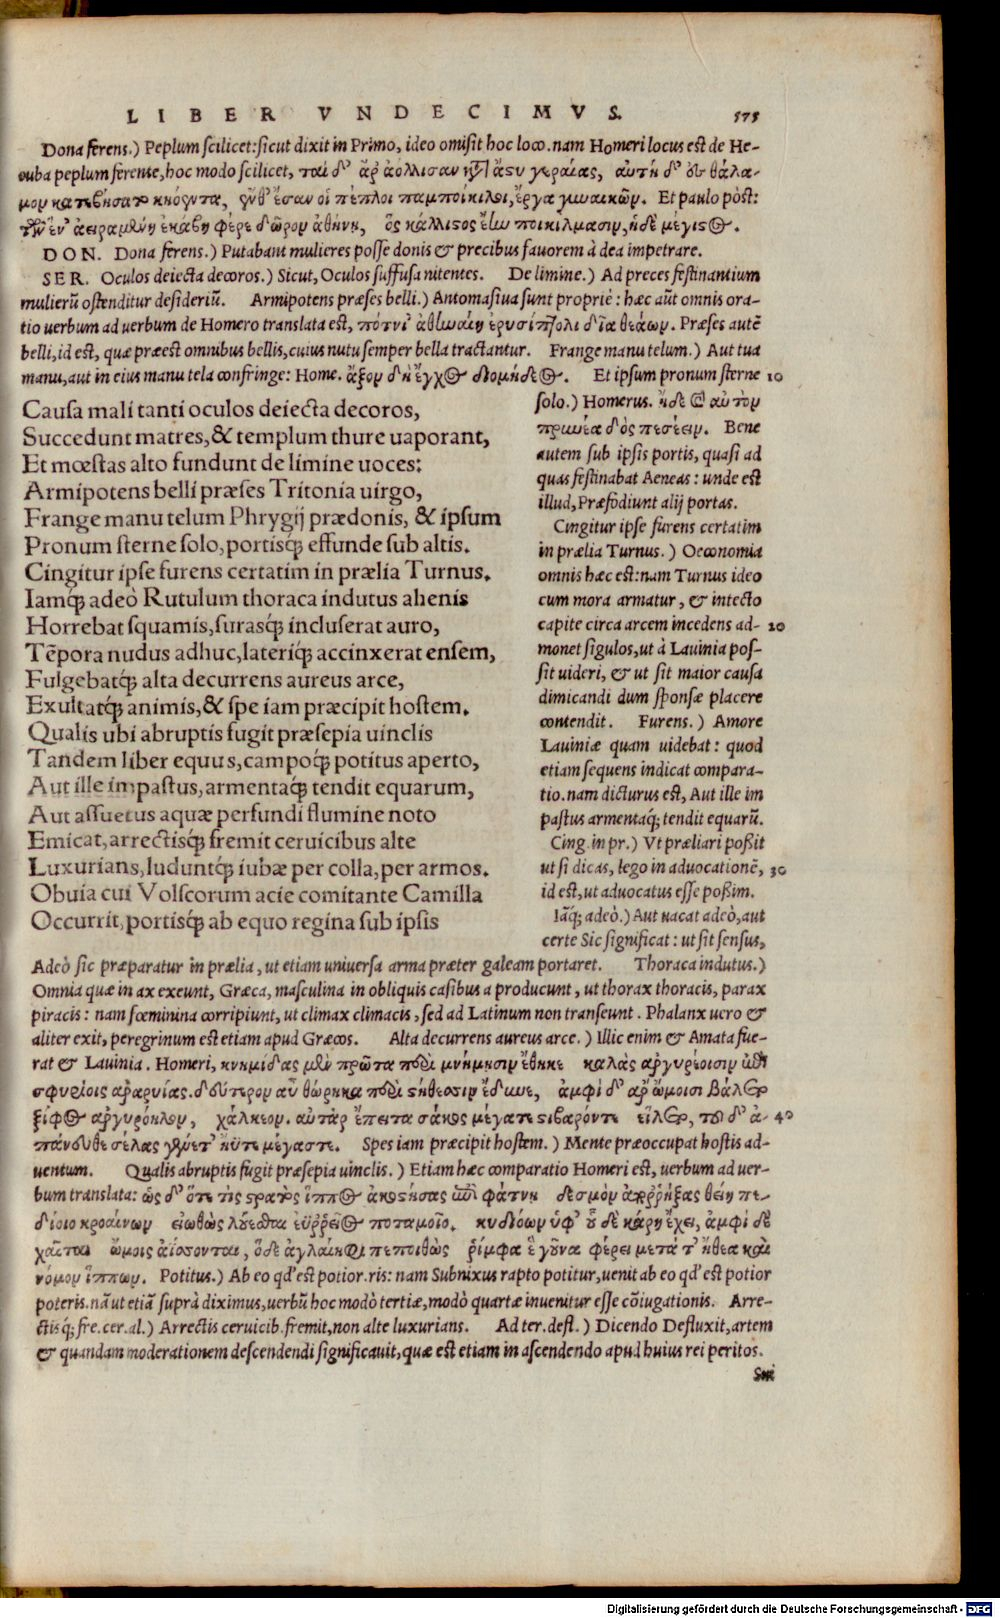 LIBER VNDECIMVS. 575
Dona ferens.) Peplum scilicet: sicut dixit in Primo, ideo omisit hoc loco. nam Homeri locus est de He-
cuba peplum ferente, hoc modo scilicet, ταὶ δ' ἄρ' ἀόλλισαν κτ' ἄστυ γεραίας, αὐτὴ δ' ἐς θάλα-
μον κατεβήσατο κηόεντα, ἔνθ' ἔσαν οἱ πέπλοι παμποίκιλοι, ἔργα γυναικῶν. Et paulo pòst:
τῶν ἕν' ἀειραμένη ἑκάβη φέρε δῶρον ἀθήνῃ, ὃς κάλλιστος ἔην ποικίλμασιν, ἠδὲ μέγιστος.
DON. Dona ferens.) Putabant mulieres posse donis & precibus fauorem à dea impetrare.
SER. Oculos deiecta decoros.) Sicut, Oculos suffusa nitentes. De limine.) Ad preces festinantium
mulierũ ostenditur desideriũ. Armipotens præses belli.) Antomasiua sunt propriè: hæc aũt omnis ora-
tio uerbum ad uerbum de Homero translata est, πότνι' ἀθηναίη ἐρυσίπτολι δῖα θεάων. Præses autẽ
belli, id est, quæ præest omnibus bellis, cuius nutu semper bella tractantur. Frange manu telum.) Aut tua
manu, aut in eius manu tela confringe: Home. ἄξον δὴ ἔγχος διομήδεος. Et ipsum pronum sterne 10
Causa mali tanti oculos deiecta decoros,
Succedunt matres, & templum thure uaporant,
Et mœstas alto fundunt de limine uoces:
Armipotens belli præses Tritonia uirgo,
Frange manu telum Phrygij prædonis, & ipsum
Pronum sterne solo, portisq́; effunde sub altis.
Cingitur ipse furens certatim in prælia Turnus.
Iamq́; adeò Rutulum thoraca indutus ahenis
Horrebat squamis, surasq́; incluserat auro,
Tẽpora nudus adhuc, lateriq́; accinxerat ensem,
Fulgebatq́; alta decurrens aureus arce,
Exultatq́; animis, & spe iam præcipit hostem.
Qualis ubi abruptis fugit præsepia uinclis
Tandem liber equus, campoq́; potitus aperto,
Aut ille impastus, armentaq́; tendit equarum,
Aut assuetus aquæ perfundi flumine noto
Emicat, arrectisq́; fremit ceruicibus alte
Luxurians, luduntq́; iubæ per colla, per armos.
Obuia cui Volscorum acie comitante Camilla
Occurrit, portisq́; ab equo regina sub ipsis
solo.) Homerus. ἠδὲ καὶ αὐτὸν
πρηνέα δὸς πεσέειν. Bene
autem sub ipsis portis, quasi ad
quas festinabat Aeneas: unde est
illud, Præfodiunt alij portas.
Cingitur ipse furens certatim
in prælia Turnus.) Oeconomia
omnis hæc est: nam Turnus ideo
cum mora armatur, & intecto
capite circa arcem incedens ad- 20
monet sigulos, ut à Lauinia pos-
sit uideri, & ut sit maior causa
dimicandi dum sponsæ placere
contendit. Furens.) Amore
Lauiniæ quam uidebat: quod
etiam sequens indicat compara-
tio. nam dicturus est, Aut ille im
pastus armentaq́; tendit equarũ.
Cing. in pr.) Vt præliari possit
ut si dicas, lego in aduocationẽ, 30
id est, ut aduocatus esse possim.
Iãq́; adeò.) Aut uacat adeò, aut
certe Sic significat: ut sit sensus,
Adeò sic præparatur in prælia, ut etiam uniuersa arma præter galeam portaret. Thoraca indutus.)
Omnia quæ in ax exeunt, Græca, masculina in obliquis casibus a producunt, ut thorax thoracis, parax
piracis: nam fœminina corripiunt, ut climax climacis, sed ad Latinum non transeunt. Phalanx uero &
aliter exit, peregrinum est etiam apud Græcos. Alta decurrens aureus arce.) Illic enim & Amata fue-
rat & Lauinia. Homeri, κνημίδας μὲν πρῶτα περὶ κνήμησιν ἔθηκε καλὰς ἀργυρέοισιν ἐπὶ
σφυρίοις ἀραρυίας. δεύτερον αὖ θώρηκα περὶ στήθεσσιν ἔδυνε, ἀμφὶ δ' ἄρ' ὤμοισι βάλετο
ξίφος ἀργυρόηλον, χάλκεον. αὐτὰρ ἔπειτα σάκος μέγα τε στιβαρόν τε εἵλετο, τοῦ δ' ἀ- 40
πάνευθε σέλας γένετ' ἠΰτε μέγα στε. Spes iam præcipit hostem.) Mente præoccupat hostis ad-
uentum. Qualis abruptis fugit præsepia uinclis.) Etiam hæc comparatio Homeri est, uerbum ad uer-
bum translata: ὡς δ' ὅτε τὶς στρατὸς ἵππος ἀκοστήσας ἐπὶ φάτνῃ δεσμὸν ἀπορρήξας θείῃ πε-
δίοιο κροαίνων εἰωθὼς λούεσθαι ἐϋρρεῖος ποταμοῖο. κυδιόων ὑψ' οὗ δὲ κάρη ἔχει, ἀμφὶ δὲ
χαῖται ὤμοις ἀΐσσονται, ὅδε ἀγλαΐηφι πεποιθὼς ῥίμφα ἑ γοῦνα φέρει μετά τ' ἤθεα καὶ
νόμον ἵππων. Potitus.) Ab eo qd' est potior. ris: nam Subnixus rapto potitur, uenit ab eo qd' est potior
poteris. nã ut etiã suprà diximus, uerbũ hoc modò tertiæ, modò quartæ inuenitur esse cõiugationis. Arre-
ctisq́; fre. cer. al.) Arrectis ceruicib. fremit, non alte luxurians. Ad ter. defl.) Dicendo Defluxit, artem
& quandam moderationem descendendi significauit, quæ est etiam in ascendendo apud huius rei peritos.
Digitalisierung gefördert durch die Deutsche Forschungsgemeinschaft - DFG